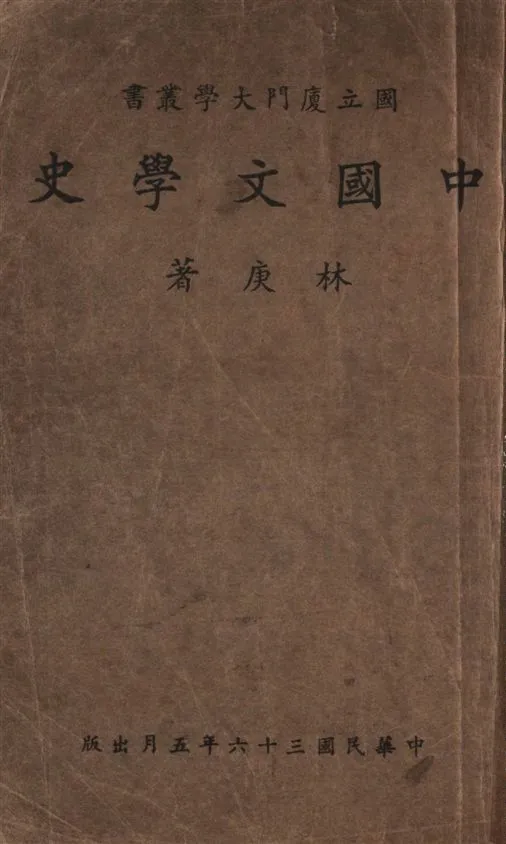 國立廈門大學叢書
中國文學史
林庚著
中華民國三十六年五月出版